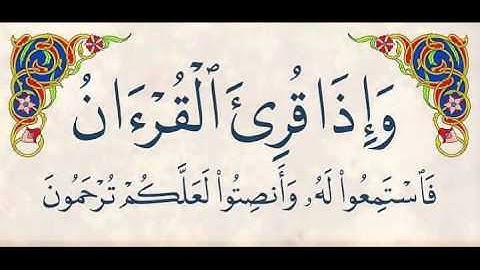 وَإِذَا قُرِئَ ٱلْقُرْءَانُ
فَٱسْتَمِعُوا۟ لَهُۥ وَأَنصِتُوا۟ لَعَلَّكُمْ تُرْحَمُونَ